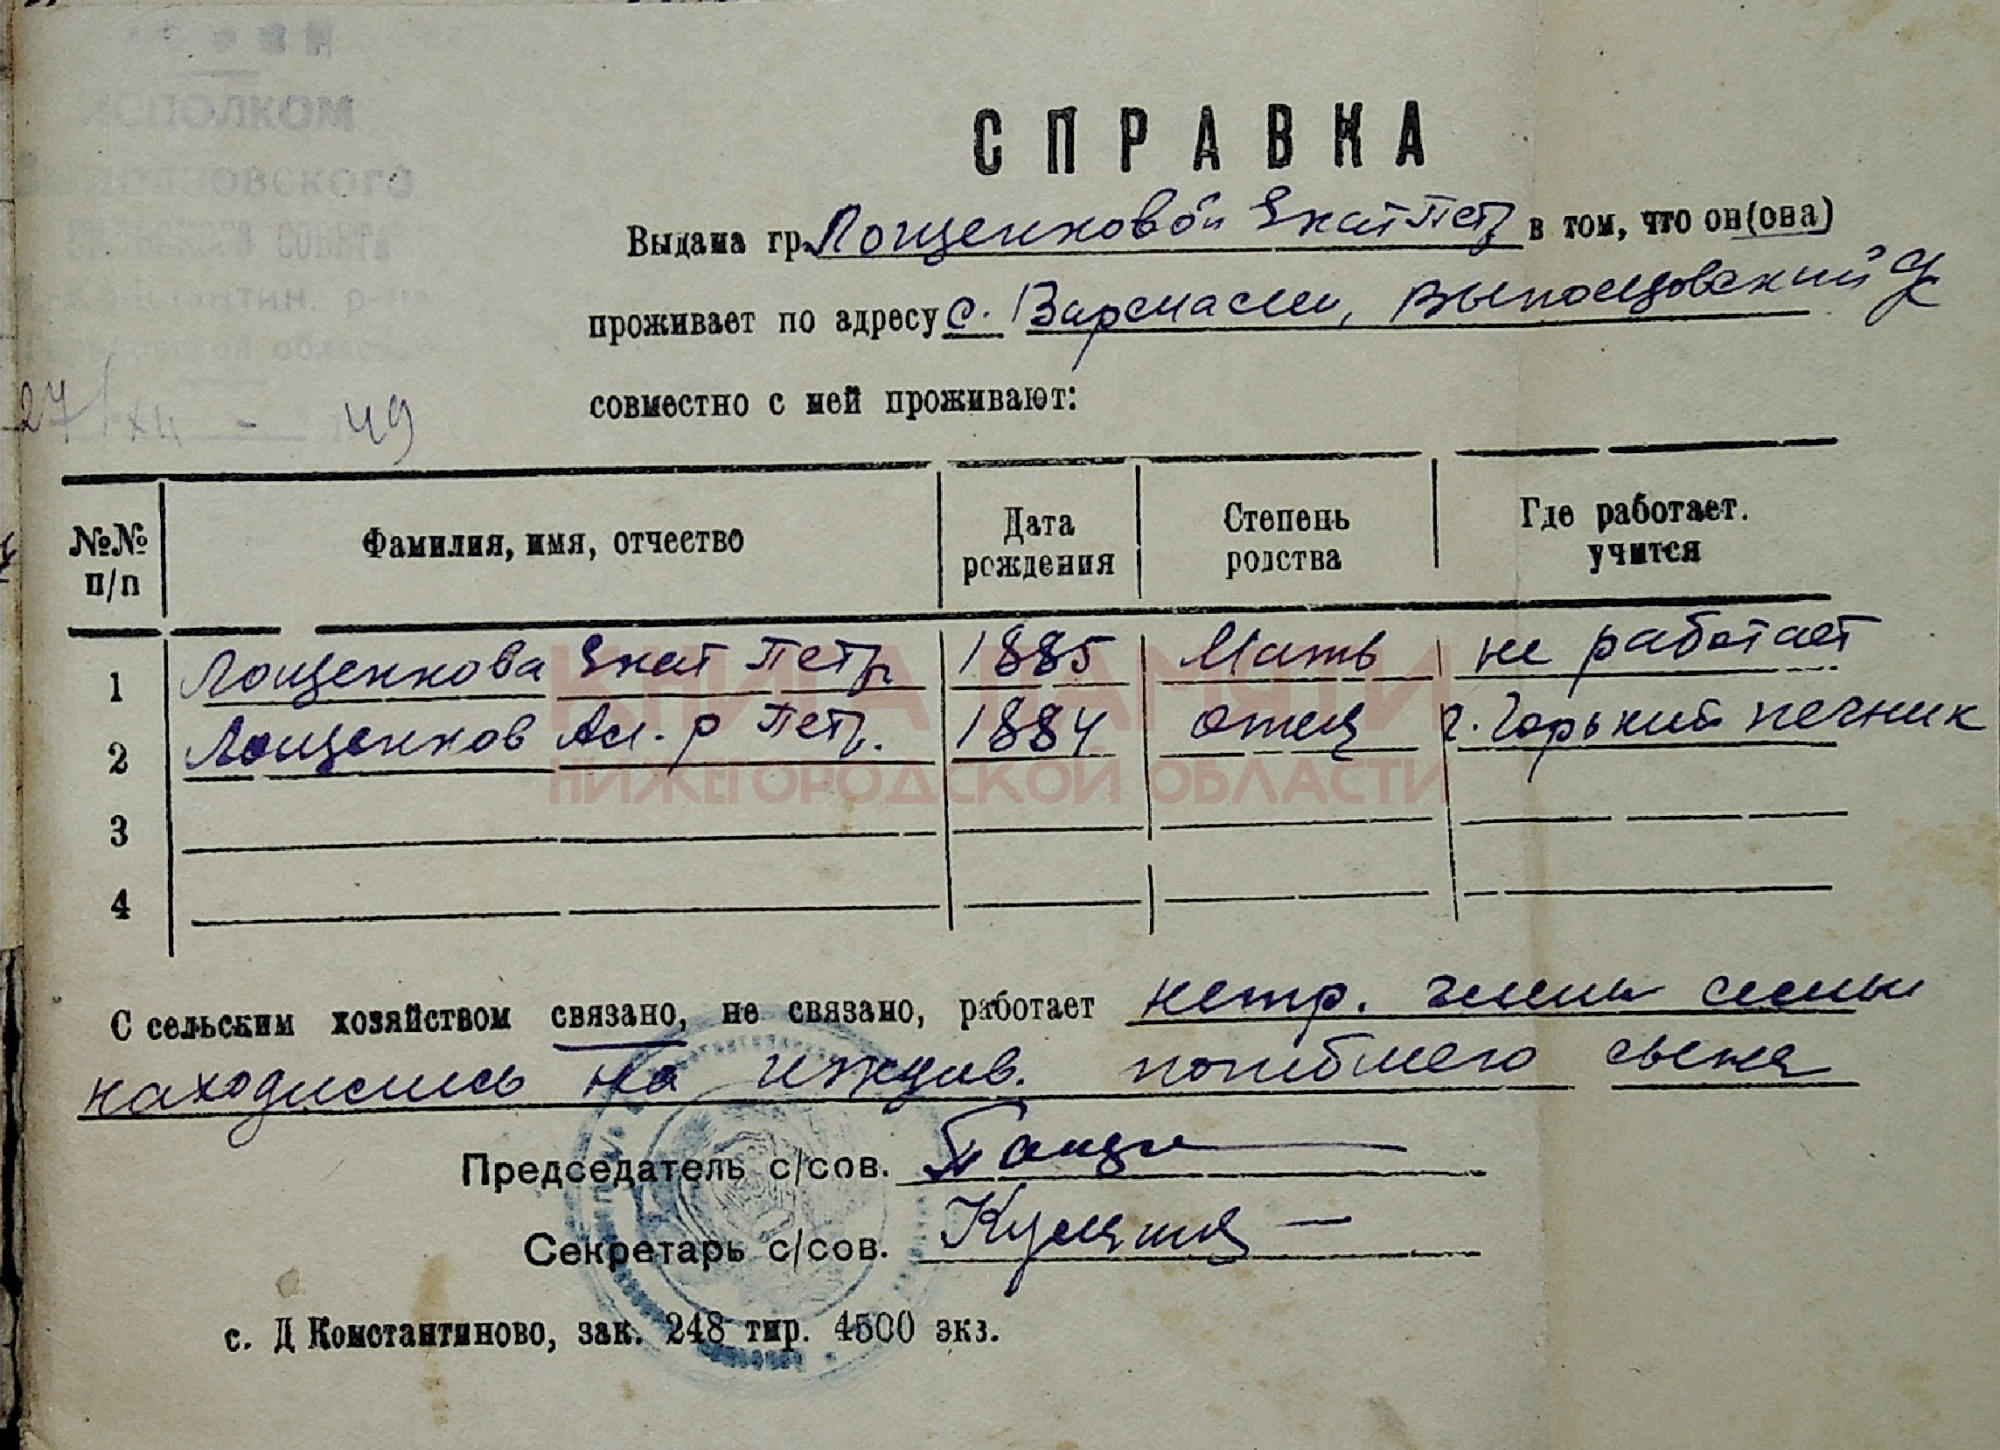 ИСПОЛКОМ
СЕЛЬСКОГО СОВЕТА
27/XII - 49
СПРАВКА
Выдана гр. Лощенковой Екат Петр в том, что он(она)
проживает по адресу с. Вармалеи,
совместно с ней проживают:
№№ п/п Фамилия, имя, отчество Дата рождения Степень родства Где работает. учится
1 Лощенкова Екат Петр 1885 Мать не работает
2 Лощенков Ал-р Петр. 1884 отец г. Горький печник
3
4
КНИГА ПАМЯТИ
НИЖЕГОРОДСКОЙ ОБЛАСТИ
С сельским хозяйством связано, не связано, работает нетр. члены семьи
находились на иждив. погибшего сына
Председатель с/сов.
Секретарь с/сов.
с. Д Константиново, зак. 248 тир. 4500 экз.